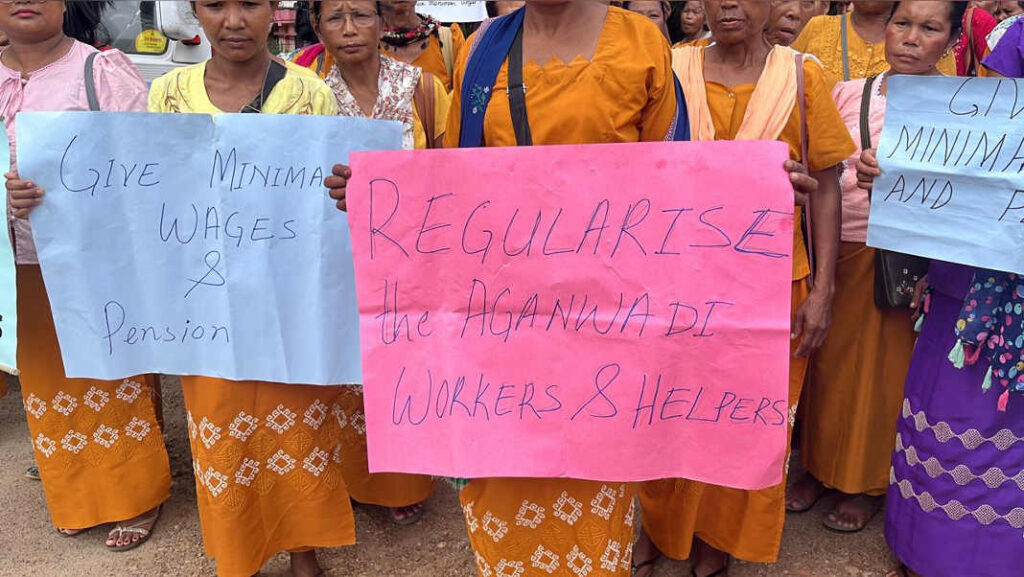 GIVE MINIMA
WAGES
&
Pension
REGULARISE
the AGANWADI
WORKERS & HELPERS
GIV
MINIMA
AND P